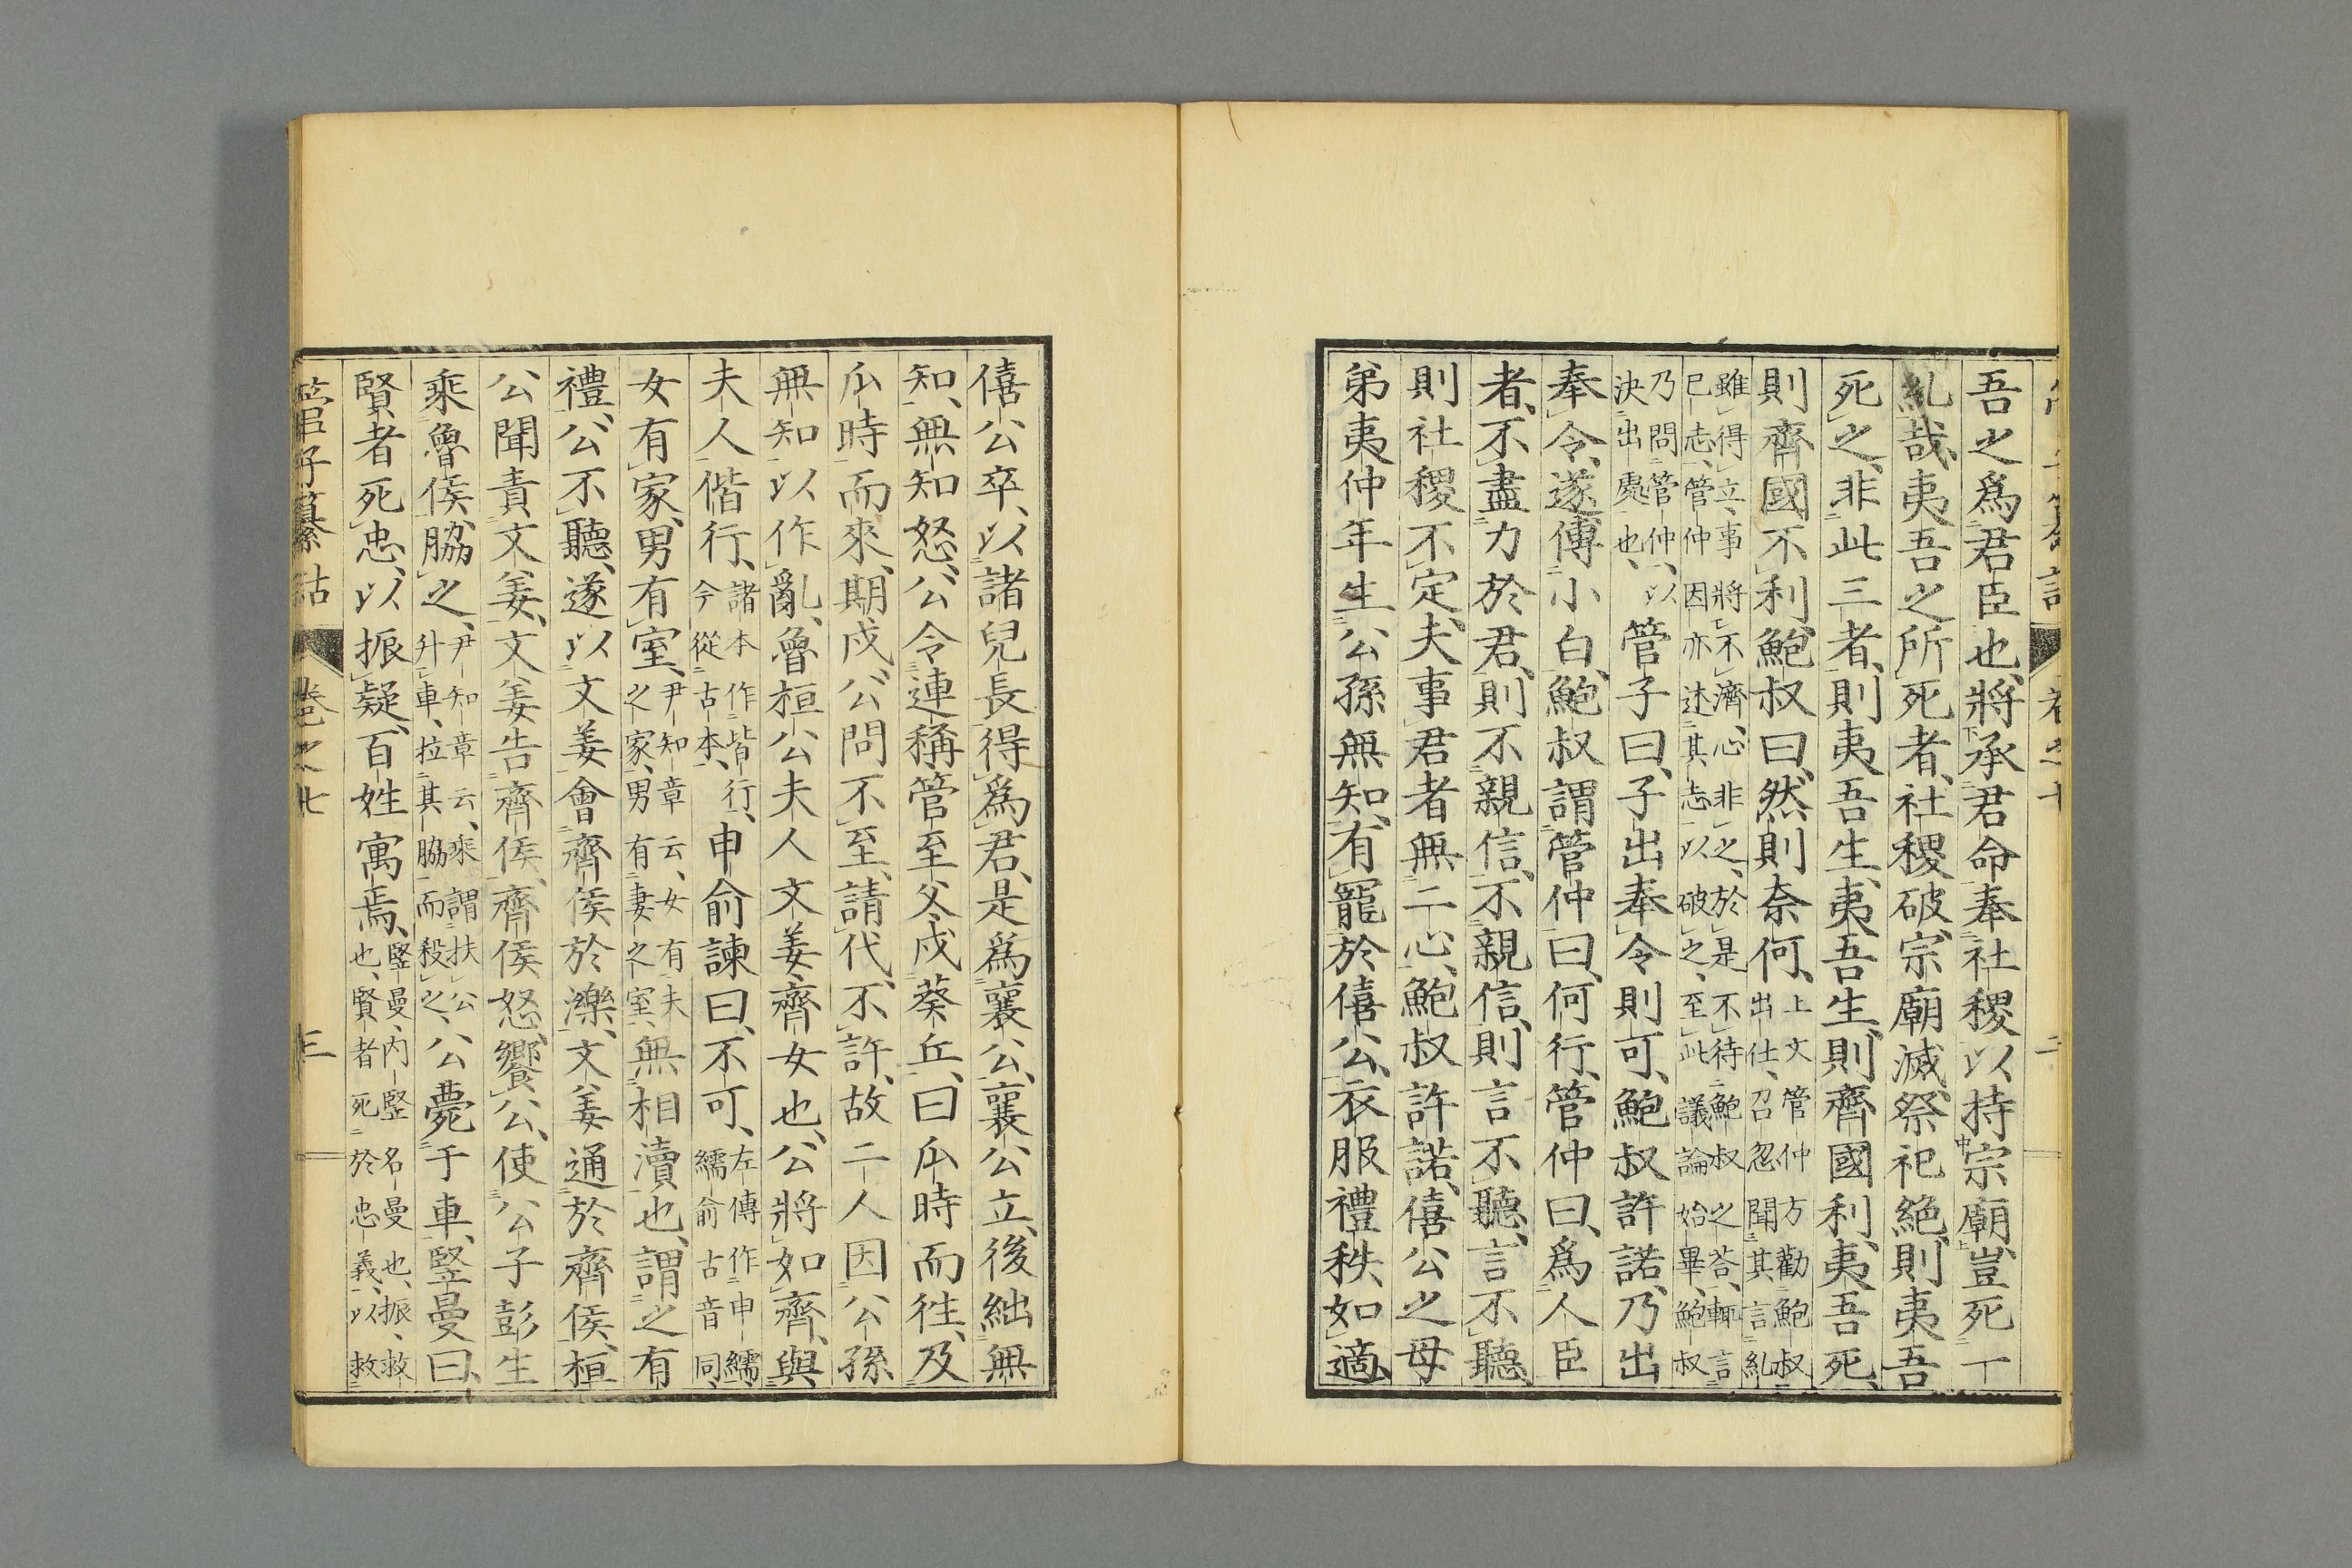 吾之爲君臣也、將承君命奉社稷以持宗廟、豈死一
糺哉、夷吾之所死者、社稷破、宗廟滅、祭祀絕、則夷吾
死之、非此三者、則夷吾生、夷吾生、則齊國利、夷吾死、
則齊國不利、鮑叔曰、然則奈何、上文管仲方勸鮑叔
出仕、召忽聞其言糺
雖得立、事將不濟、心非之、於是不待鮑叔之荅、輒言
已志、管仲因亦述其志以破之、至此議論始畢、鮑叔
乃問管仲、以
決出處也、管子曰、子出奉令則可、鮑叔許諾、乃出
奉令、遂傅小白、鮑叔謂管仲曰、何行、管仲曰、爲人臣
者、不盡力於君、則不親信、不親信、則言不聽、言不聽、
則社稷不定、夫事君者無二心、鮑叔許諾、僖公之母
弟夷仲年生公孫無知、有寵於僖公、衣服禮秩、如適、
僖公卒、以諸兒長得爲君、是爲襄公、襄公立、後絀無
知、無知怒、公令連稱管至父、戍葵丘、曰瓜時而徃、及
瓜時而來、期戍、公問不至、請代、不許、故二人因公孫
無知以作亂、魯桓公夫人文姜、齊女也、公將如齊、與
夫人偕行、諸本作皆行、
今從古本、申俞諫曰、不可、左傳作申繻、
繻俞古音同、
女有家、男有室、尹知章云、女有夫
之家、男有妻之室、無相瀆也、謂之有
禮、公不聽、遂以文姜會齊侯於濼、文姜通於齊侯、桓
公聞責文姜、文姜告齊侯、齊侯怒、饗公、使公子彭生
乘魯侯、脇之、尹知章云、乘謂扶公
升車、拉其脇而殺之、公薨于車、豎曼曰、
賢者死忠、以振疑、百姓寓焉、豎曼、內豎名曼也、振、救
也、賢者死於忠義、以救
管子纂詁 卷之七 三